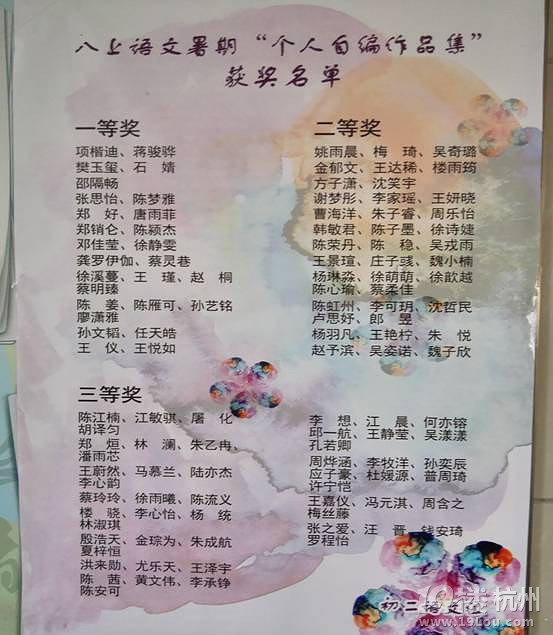 八上语文暑期“个人自编作品集”
获奖名单
一等奖
项楷迪、蒋骏骅
樊玉玺、石 婧
邵隔畅
张思怡、陈梦雅
郑 好、唐雨菲
郑销仑、陈颖杰
邓佳莹、徐静雯
龚罗伊伽、蔡灵巷
徐溪蔓、王 瑾、赵 桐
蔡明臻
陈 姜、陈雁可、孙艺铭
廖潇雅
孙文韬、任天皓
王 仪、王悦如
二等奖
姚雨晨、梅 琦、吴奇璐
金郁文、王达稀、楼雨筠
方子潇、沈笑宇
谢梦彤、李家瑶、王妍晓
曹海洋、朱子睿、周乐怡
韩敏君、陈子墨、徐诗婕
陈荣丹、陈 稳、吴戎雨
王景瑄、庄子彧、魏小楠
杨琳淼、徐萌萌、徐歆越
陈心瑜、蔡柔佳
陈虹州、李可玥、沈哲民
卢思妤、郎 昱
杨羽凡、王艳柠、朱 悦
赵予滨、吴姿诺、魏子欣
三等奖
陈江楠、江敏骐、屠 化
胡译匀
郑 烜、林 澜、朱乙冉、
潘雨芯
王蔚然、马慕兰、陆亦杰
李心韵
蔡玲玲、徐雨曦、陈流义
楼 骁、李心怡、杨 统
林淑琪
殷浩天、金琮为、朱成航
夏梓恒
洪来勋、尤乐天、王泽宇
陈 茜、黄文伟、李承铮
陈安可
李 想、江 晨、何亦镕
邱一航、王静莹、吴漾漾
孔若卿
周烨涵、李牧洋、孙奕辰
应子豪、杜媛源、普周琦
许宁恺
王嘉仪、冯元淇、周含之
梅丝藤
张之爱、汪 晋、钱安琦
罗程怡
初二语文
杭州
www.19lou.com